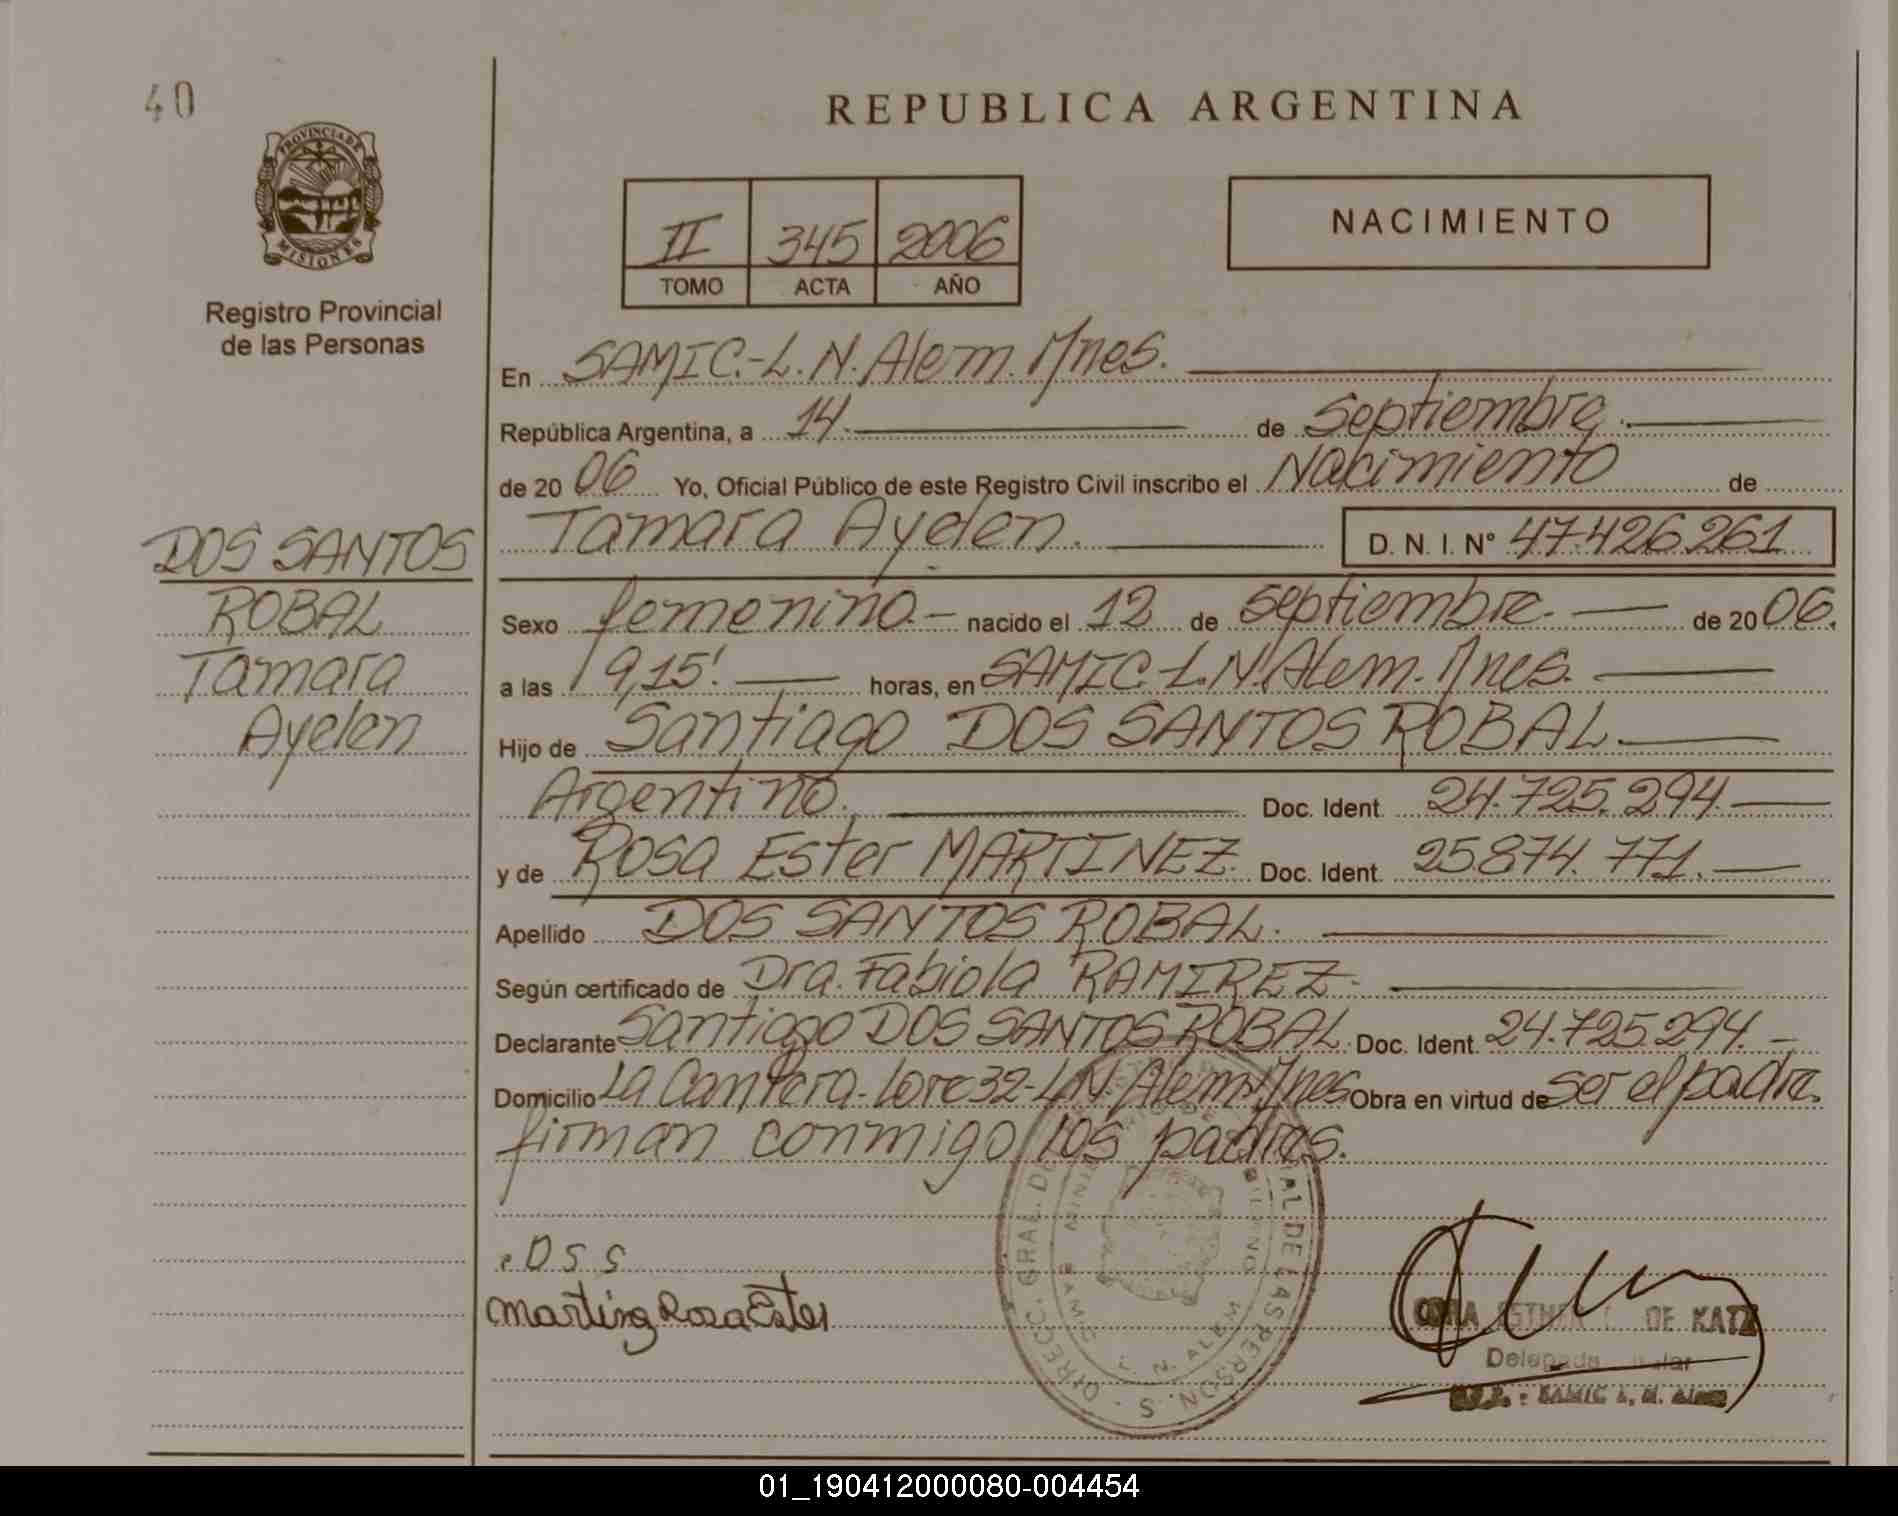 40
PROVINCIA DE
MISIONES
Registro Provincial
de las Personas
DOS SANTOS
ROBAL
Tamara
Ayelen
REPUBLICA ARGENTINA
II 345 2006
TOMO ACTA AÑO
NACIMIENTO
En SAMIC.-L.N.Alem.Mnes.
República Argentina, a 14. de Septiembre.
de 20 06 Yo, Oficial Público de este Registro Civil inscribo el Nacimiento de
Tamara Ayelen. D. N. I. Nº 47.426.261
Sexo femenino.- nacido el 12 de septiembre. de 20 06.
a las 19,15'. horas, en SAMIC-L.N.Alem.Mnes.
Hijo de Santiago DOS SANTOS ROBAL.
Argentino. Doc. Ident. 24.725.294.
y de Rosa Ester MARTINEZ. Doc. Ident. 25874.771.
Apellido DOS SANTOS ROBAL.
Según certificado de Dra. Fabiola RAMIREZ.
Declarante Santiago DOS SANTOS ROBAL. Doc. Ident. 24.725.294.
Domicilio La Cantera-Lote 32-L.N.Alem.Mnes Obra en virtud de ser el padre.
firman conmigo los padres.
D S S
Martinez Rosa Ester
DIRECC. GRAL. DE LAS PERSON S
L. N. ALEM
DE KATZ
SAMIC L. N. Alem
01_190412000080-004454